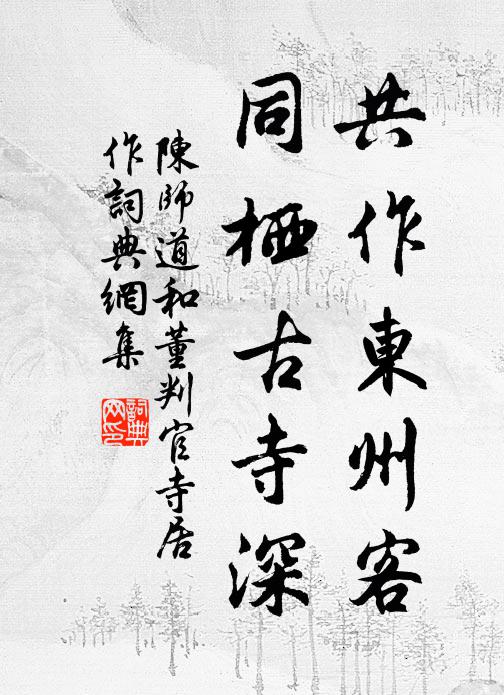 共作東州客
同栖古寺深
陳師道和董判官寺居
作詞典網集
詞典網印